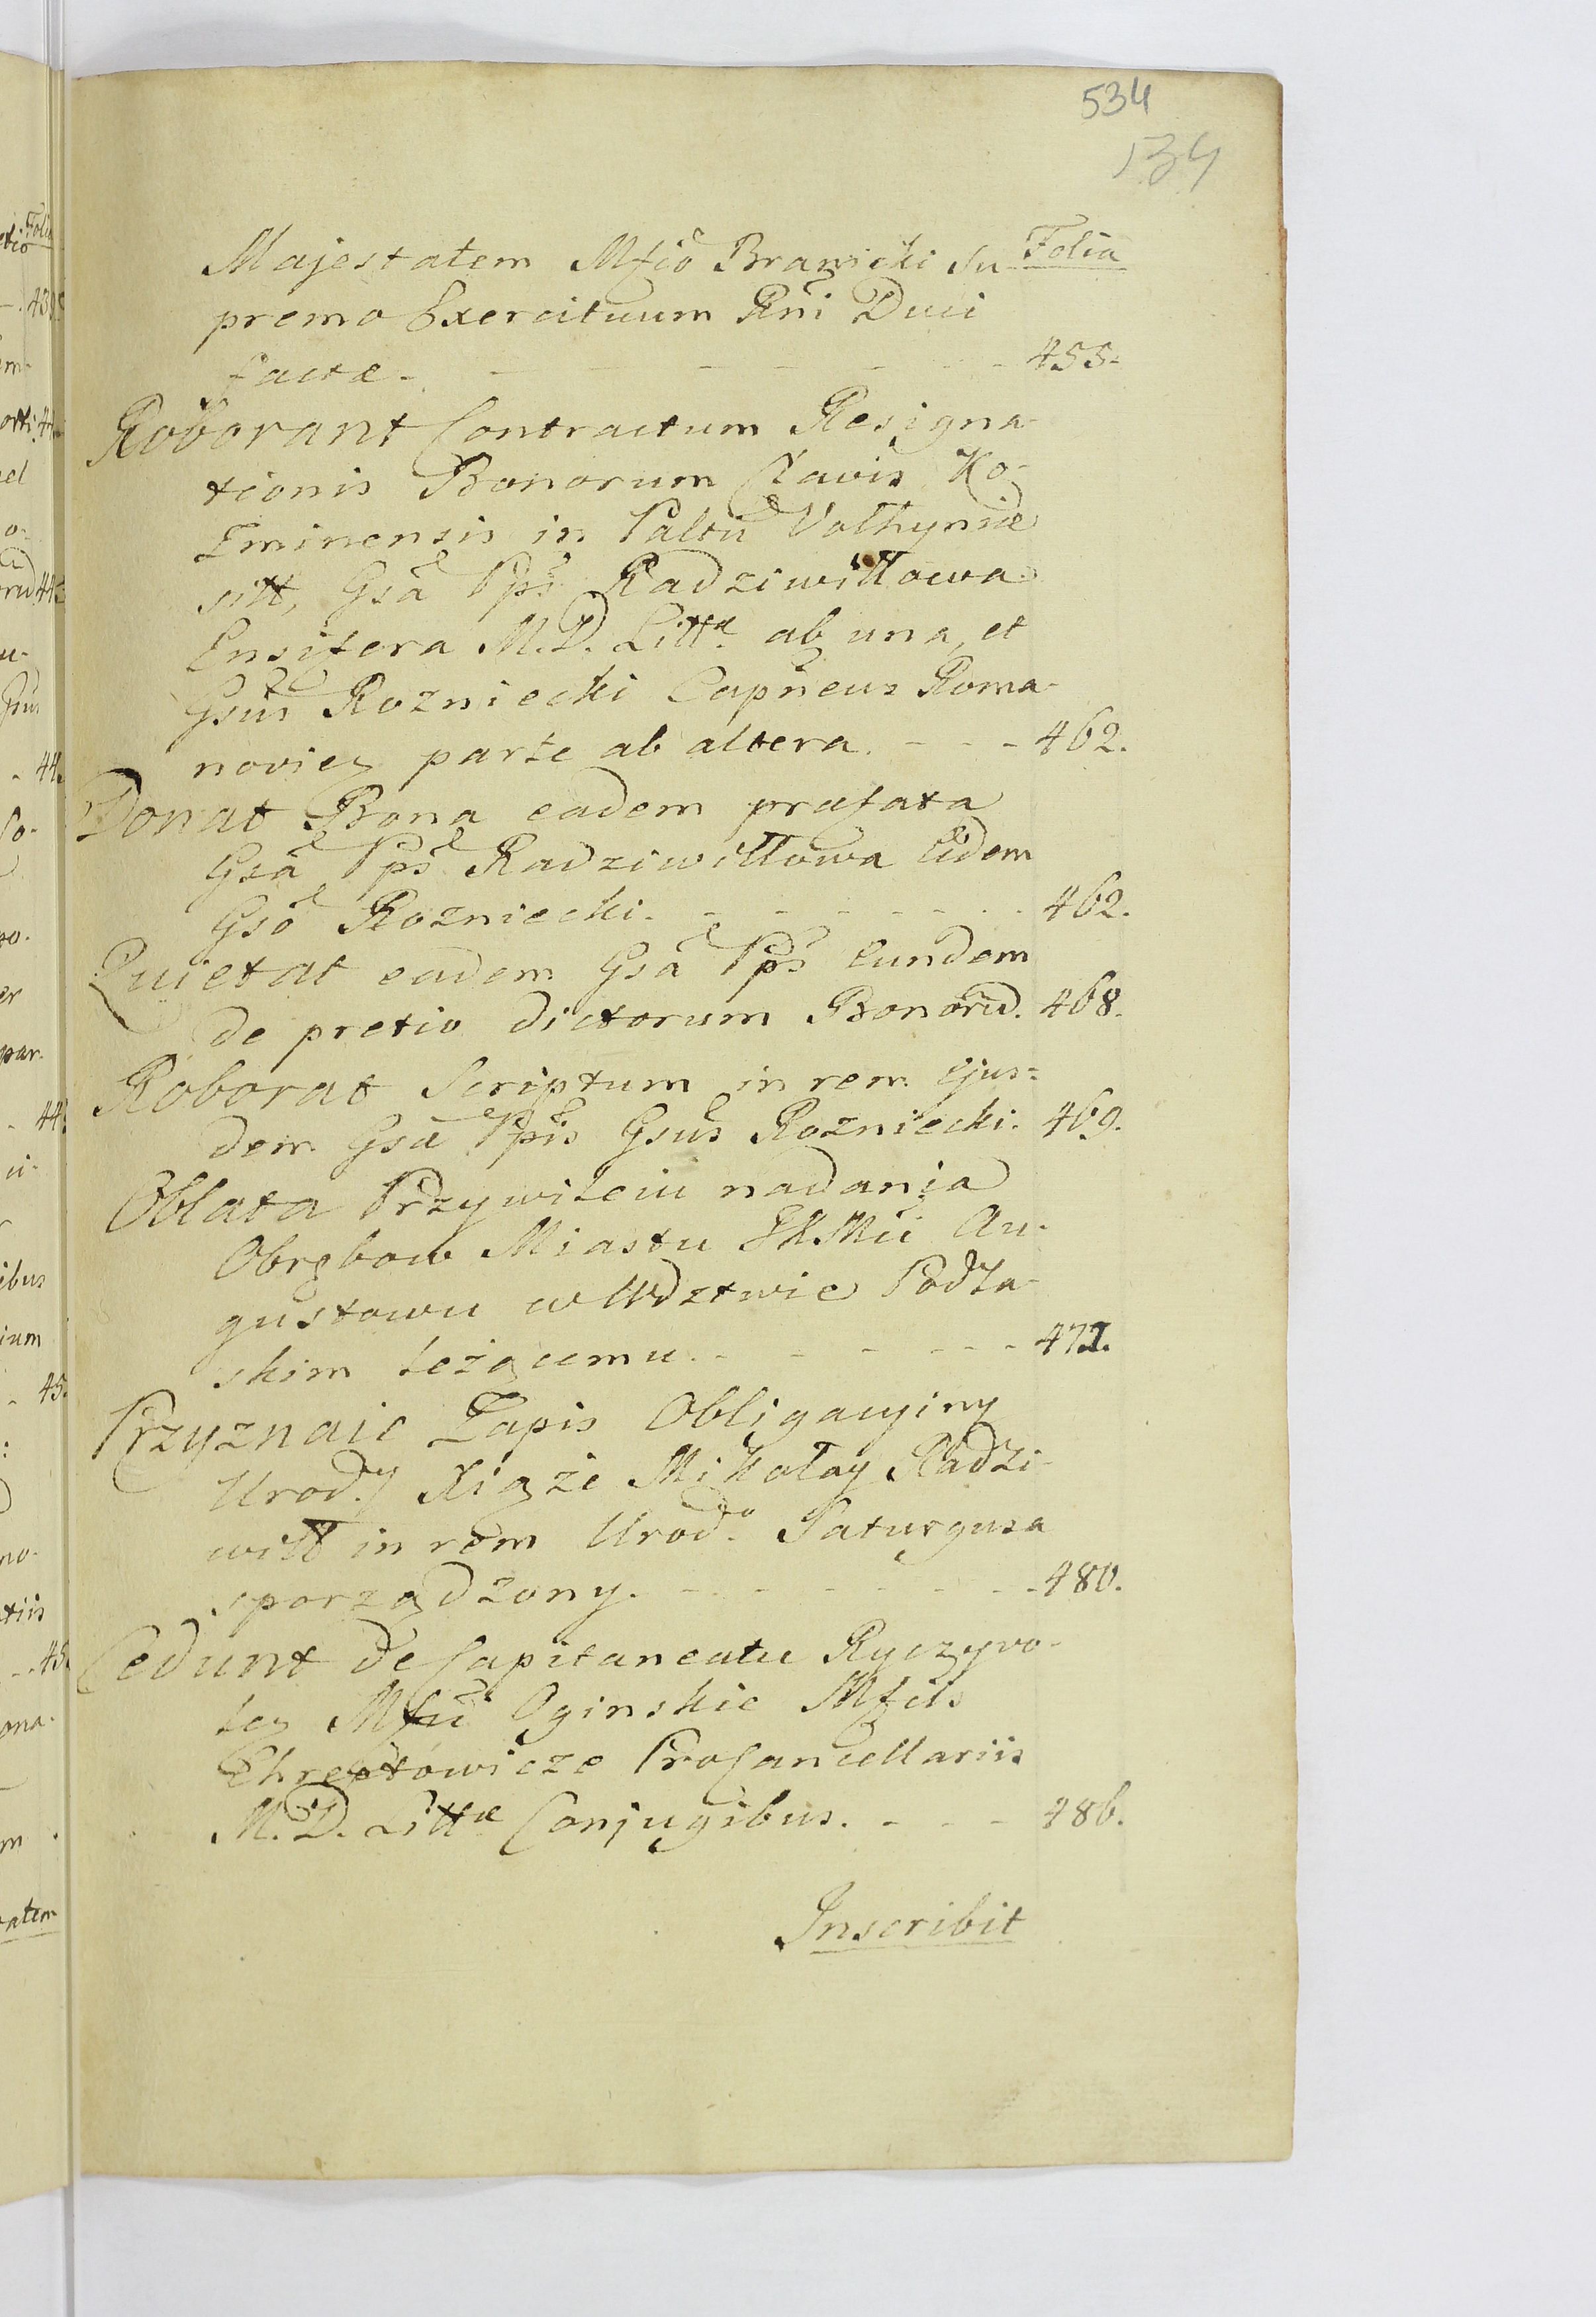 534
534
Folia
Majestatem Mfico Branicki Su
premo Exercituum Rni Duci
factæ. - - - - - - - 455.
Roborant Contractum Resigna-
tionis Bonorum Clavis Ko-
zminensis in Paltu Volhyniæ
sitt, Gsa Pps Radziwiłłowa
Ensifera M.D. Littæ ab una, et
Gsus Rozniecki Capneus Roma-
novien parte ab altera. - - - 462.
Donat Bona eadem præfata
Gsa Pps Radziwiłłowa Eidem
Gso Rozniecki. - - - - - - 462.
Quietat eadem Gsa Pps Eundem
de pretio dictorum Bonorũ. 468.
Roborat Scriptum in rem Ejus=
dem Gsæ Ppis Gsus Rozniecki. 469.
Oblata Przywileiu nadania
Obrębow Miastu JKMci Au-
gustowu w Wdztwie Podla-
skim leżącemu. - - - - - - 471.
Przyznaie Zapis Obligacyiny
Urod.y Xiąże Mikołay Radzi-
wiłł in rem Urod.o Paturgusa
sporządzony. - - - - - - - 480.
Cedunt de Capitaneatu Ryczywo-
len Mfci Oginskie Mfcis
Chreptowicze ProCancellariis
M.D. Littæ Conjugibus. - - - 486.
Inscribit